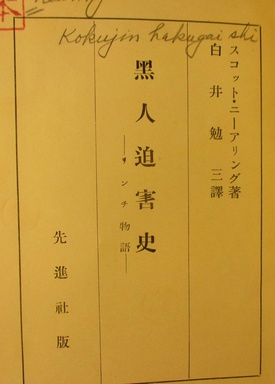 Kokujin hakugai shi
スコット・ニーアリング著
白井勉三譯
黑人迫害史
―リンチ物語―
先進社版